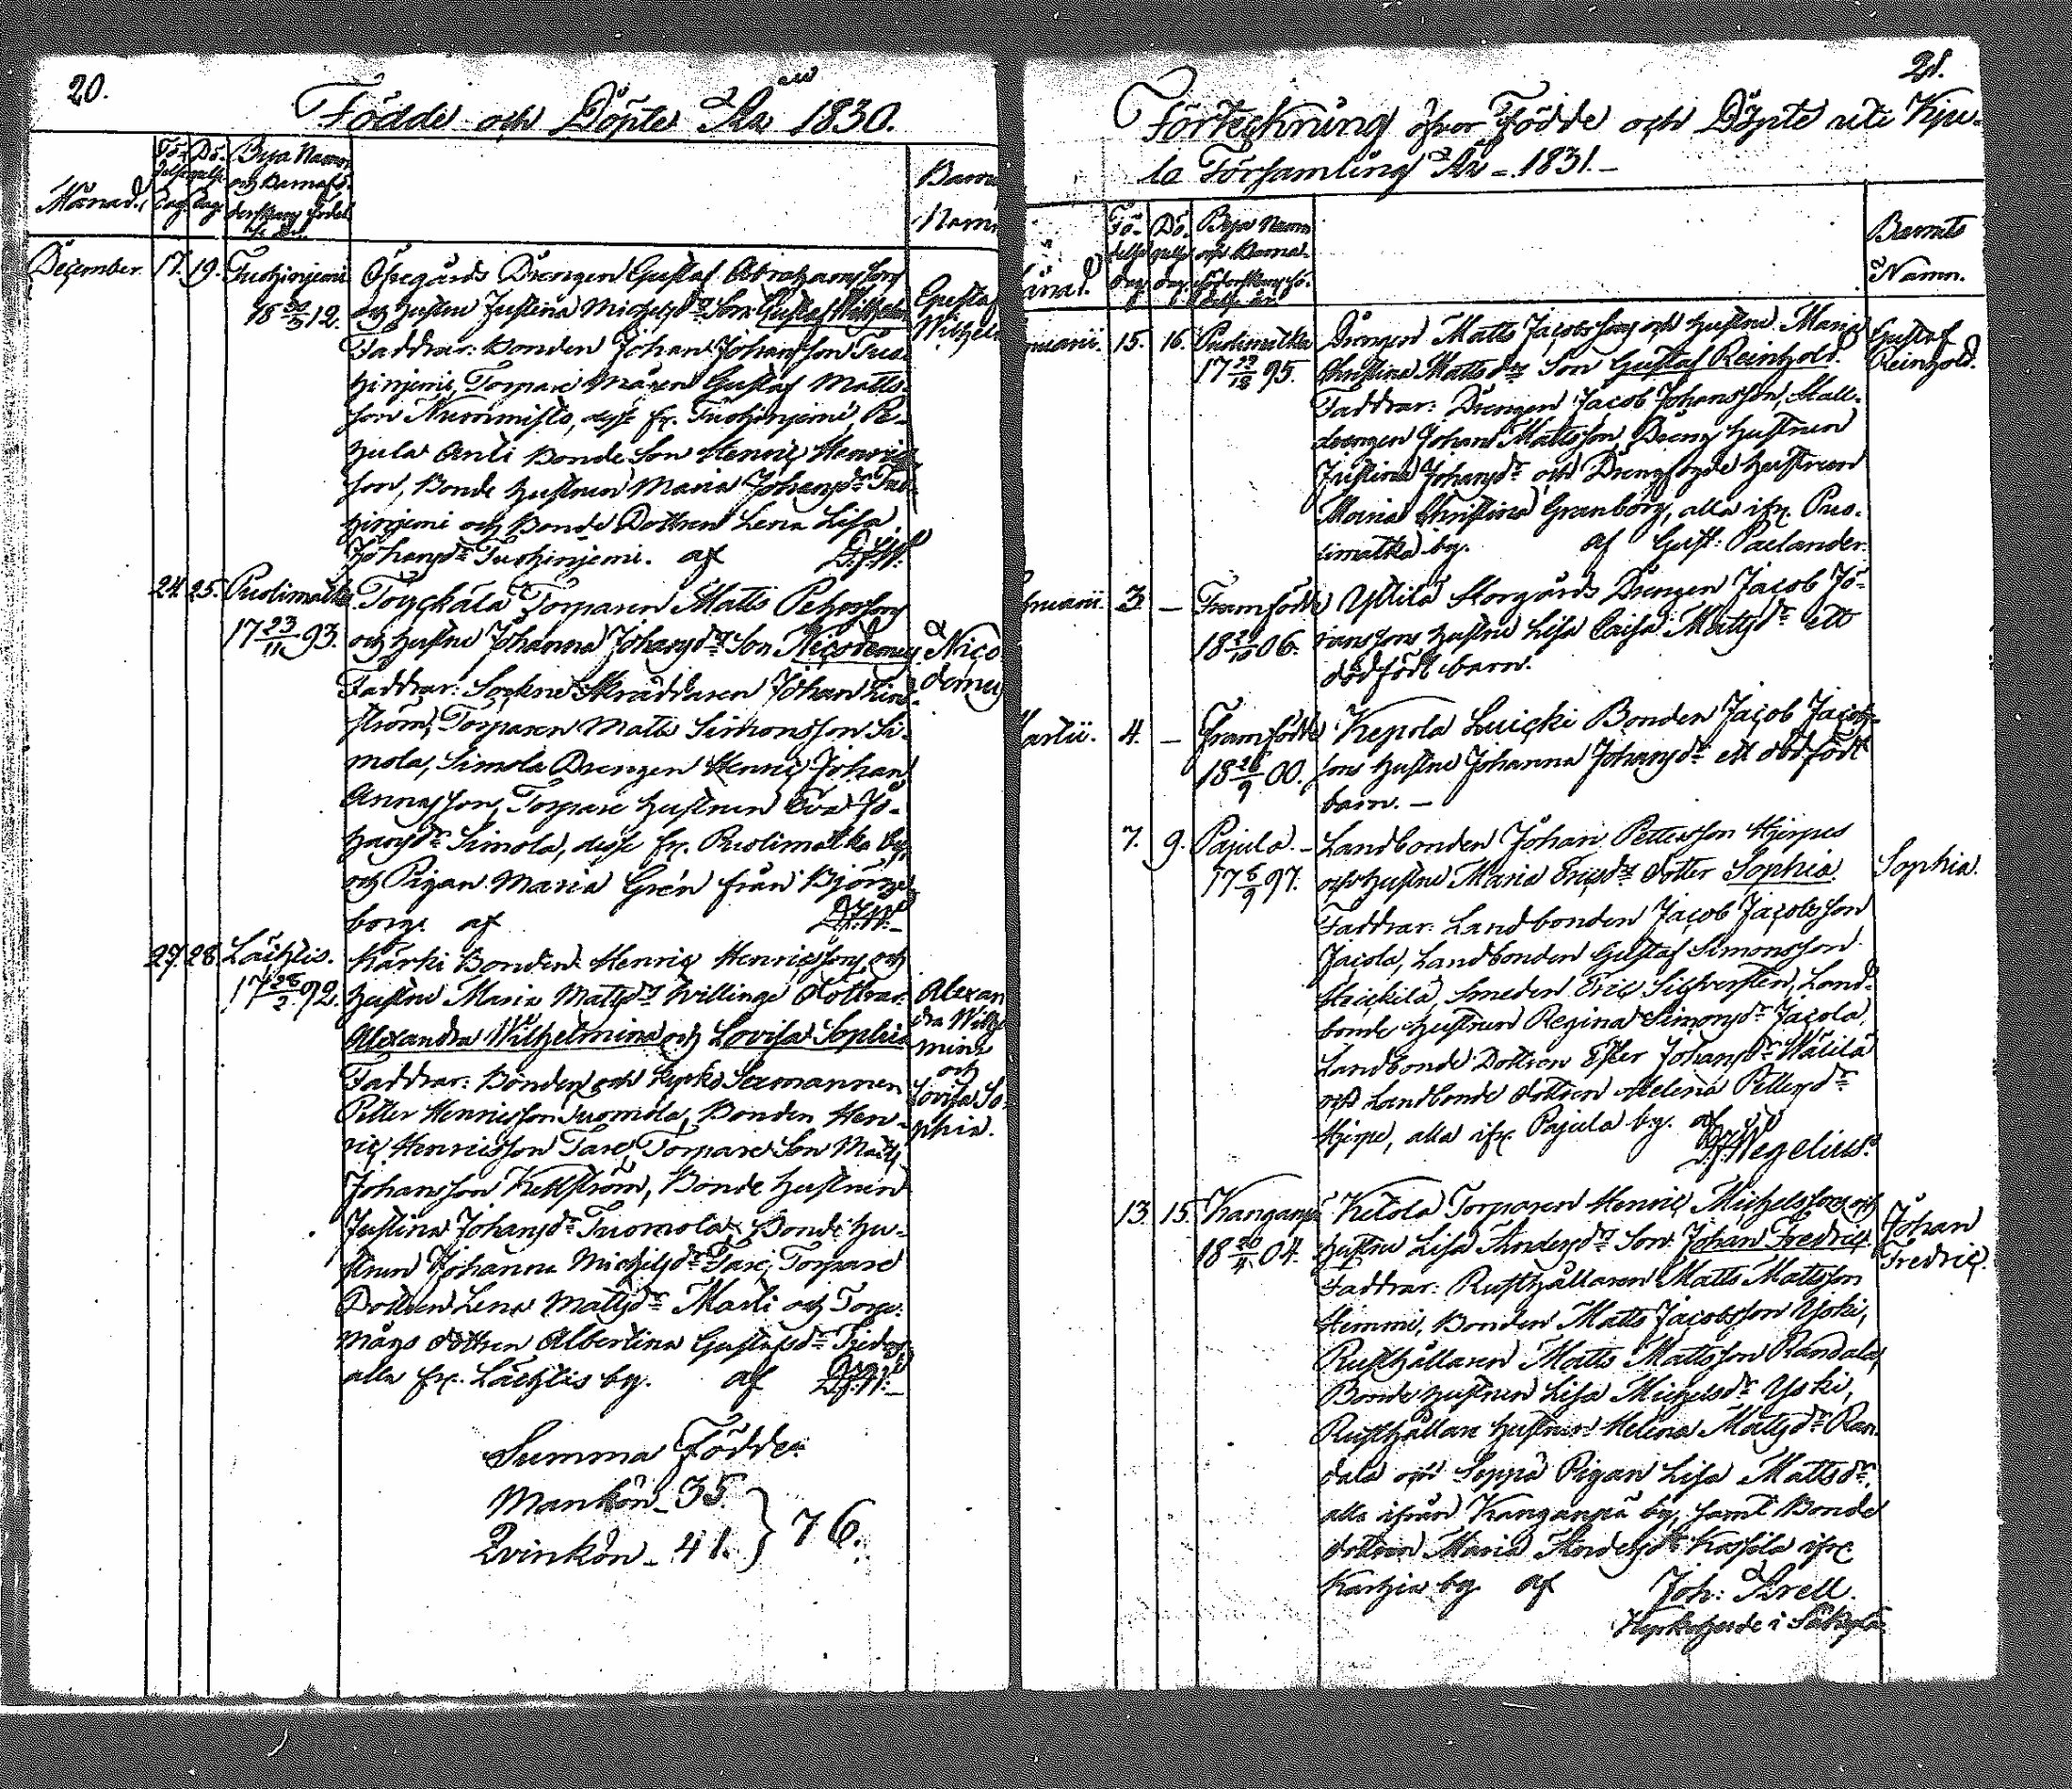 20.
Födde och Döpte År 1830.
Månad.
Fö-
delse
Dag.
Dö-
pelse
Dag.
Bya Namn
och Barnafö-
derskans födel
Barns
Namn
December. 17. 19. Tuohiniemi
18 30/5 12.
Öfvergårds Drengen Gustaf Abrahamsson
och hustru Justina Michelsdr Son: Gustaf Wilhelm
Faddrar: Bonden Johan Johansson Tuo-
hiniemi, Torparemågen Gustaf Matts-
son Nummisto, desse fr. Tuohiniemi, Pe-
hula Anti Bonde Son Henric Henrics
son, Bonde hustrun Maria Johansdr Tuo-
hiniemi och Bonde Dottren Lena Lisa
Johansdr Tuohiniemi. af D.J.W.
Gustaf
Wilhel
24. 25. Puolimatka
17 23/11 93.
Torparen Matts Pehrsson
och hustru Johanna Johansdr Son Nicodemus.
Faddrar: Sockne Skräddaren Johan Lind-
ström, Torparen Matts Simonsson Si-
mola, Simola Drengen Henric Johan
Annasson, Torpare hustrun Eva Jo-
hansdr Simola, desse fr. Puolimatka by,
och Pigan Maria Grén från Björne-
borg. af D.J.W.
Nico
demus
27. 28. Lächtis.
17 28/2 92.
Kärki Bonden Henric Henricsson och
hustru Maria Mattsdr Tvillinge Döttrar
Alexandra Wilhelmina och Lovisa Sophia
Faddrar: Bonden och Kyrko Sexmannen
Petter Henricsson Tuomola, Bonden Hen-
ric Henricsson Tare, Torpare Son Matts
Johansson Kellström, Bonde hustrun
Justina Johansdr Tuomola, Bonde hu-
strun Johanna Michelsdr Tare, Torpare
Dottren Lena Mattsdr Marli och Torp-
mågs dottren Albertina Gustafsdr
alla fr. Lächtis by. af D.J.W.
Alexan
dra Wilhel
mina
och
Lovisa So-
phia.
Summa Födde:
Mankön - 35.
Qvinkön - 41. } 76.
21.
Förteckning öfver Födde och Döpte uti Kju-
lo Församling År - 1831. -
Månad.
Fö-
delse
dag.
Dö-
pelse
dag.
Bya Namn
och Barna-
föderskans fö-
delse år
Barnets
Namn.
nuarii. 15. 16. Puolimatka
17 95.
Drengen Matts Jacobsson och hustru Maria
Christina Mattsdr Son Gustaf Reinhold.
Faddrar: Drengen Jacob Johansson, Stall-
drengen Johan Mattsson, Dreng hustrun
Justina Johansdr och Drengfogde hustrun
Maria Christina Granborg, alla ifr. Puo-
limatka by. af Gust: Paelander.
Gustaf
Reinhold.
bruarii. 3. - Framfödde
18 29/10 06.
Yttilä Storgårds Drengen Jacob Jo-
hanssons hustru Lisa Caisa Mattsdr ett
dödfödt barn.
Martii. 4. - Framfödde
18 26/9 00.
Kepola Luicki Bonden Jacob Jacobs-
sons hustru Johanna Johansdr ett dödfödt
barn. -
7. 9. Pajula. -
17 6/9 97.
Landbonden Johan Pettersson Hjerpes
och hustru Maria Ericsdr dotter Sophia
Faddrar: Landbonden Jacob Jacobsson
Jacola, Landbonden Gustaf Simonsson
Heickilä, Smeden Eric Sigfversten, Land-
bonde hustrun Regina Simonsdr Jacola,
Landbonde Dottren Ester Johansdr Wälilä
och Landbonde dottren Helena Pettersdr
Hjerpe, alla ifr. Pajula by. af
D.J. Wegelius.
Sophia.
13. 15. Kanganpä
18 20/4 04.
Ketola Torparen Henric Michelsson och
hustru Lisa Andersdr Son: Johan Fredric.
Faddrar: Rusthållaren Matts Mattsson
Hemmi, Bonden Matts Jacobsson Yski,
Rusthållaren Matts Mattsson Randala,
Bonde hustrun Lisa Michelsdr Yski,
Rusthållare hustrun Helena Mattsdr Ran-
dala och Seppä Pigan Lisa Mattsdr
alla ifrån Kanganpä by, samt Bonde
dottren Maria Andersdr Kaskala ifr.
Karhia by. af Joh: Arell.
Kyrkoherde i Säkylä
Johan
Fredric.